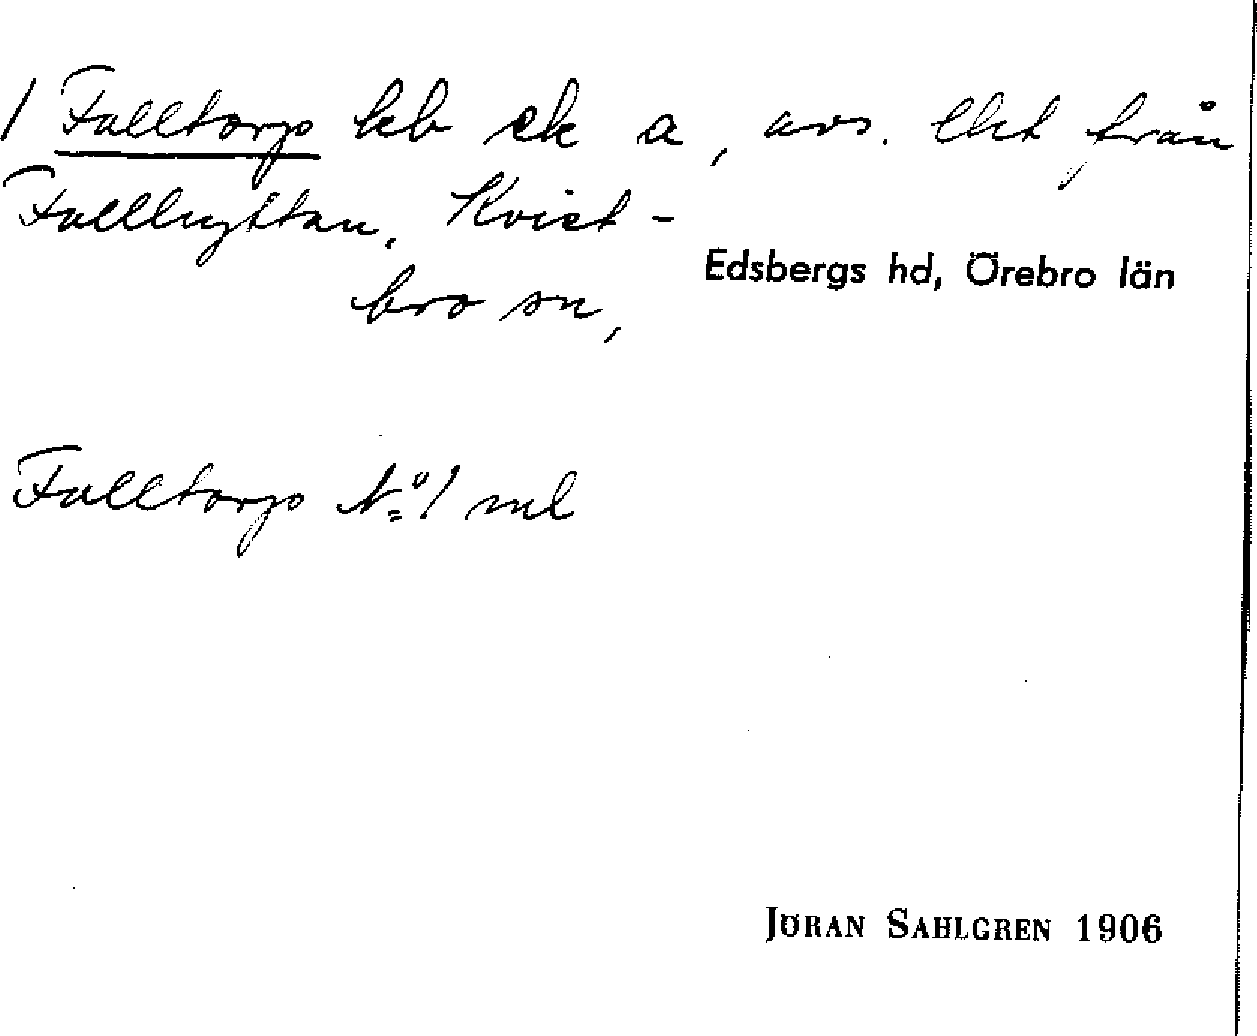 / Falltorp kb ek a, avs. Ekt från
Fallhyttan, Kvist-
bro sn,
Edsbergs hd, Örebro län
Falltorp No 1 ml
JÖRAN SAHLGREN 1906